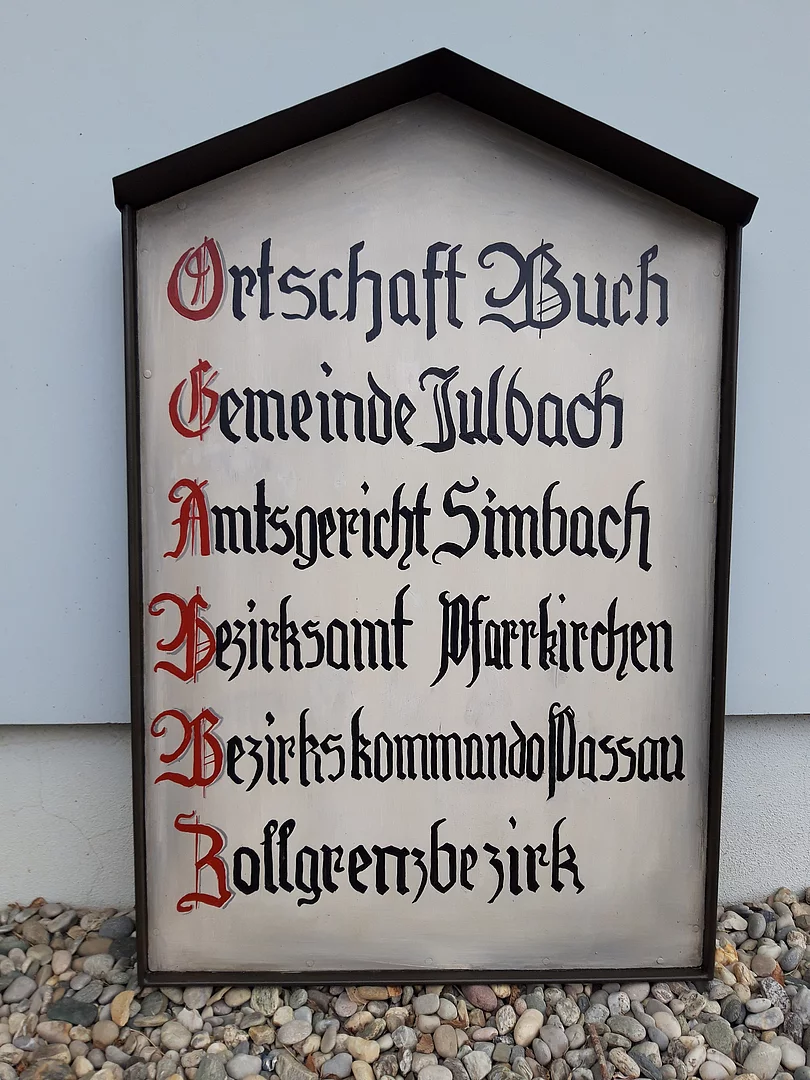 Ortschaft Buch
Gemeinde Julbach
Amtsgericht Simbach
Bezirksamt Pfarrkirchen
Bezirkskommando Passau
Zollgrenzbezirk